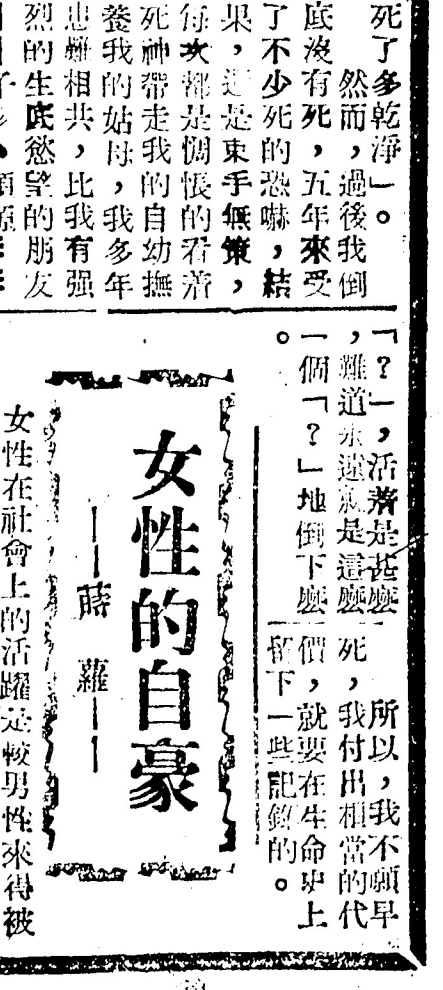 死了多乾淨」。
然而，過後我倒
底沒有死，五年來受
了不少死的恐嚇，結
果，還是束手無策，
每次都是惆悵的看着
死神帶走我的自幼撫
養我的姑母，我多年
患難相共，比我有强
烈的生底慾望的朋友
「？」，活着是甚麽
，難道永遠就是這麽
一個「？」地倒下麽
。
所以，我不願早
死，我付出相當的代
價，就要在生命史上
留下一些記錄的。
女性的自豪
——蒔蘿——
女性在社會上的活躍是較男性來得被